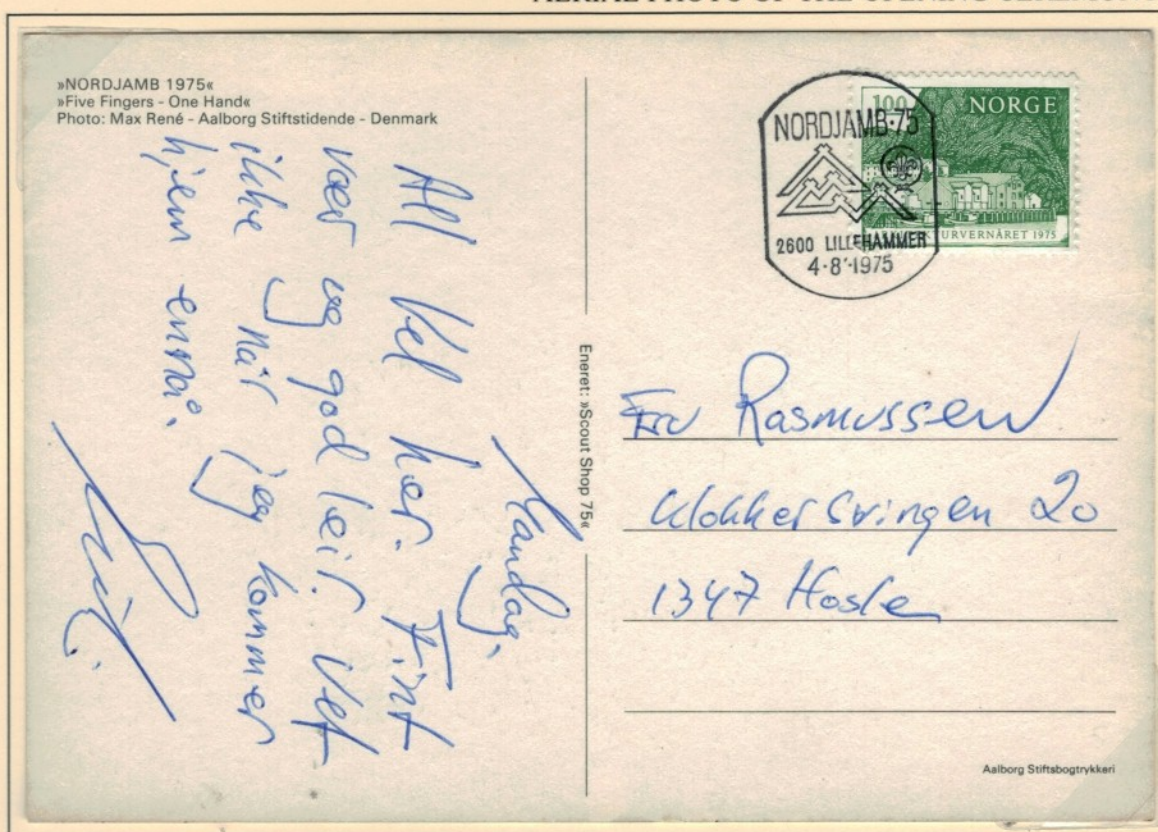 »NORDJAMB 1975«
»Five Fingers - One Hand«
Photo: Max René - Aalborg Stiftstidende - Denmark
Mandag.
All Vel her. Fint
vær og god leir. Vet
ikke når jeg kommer
hjem ennå.
Eneret: »Scout Shop 75«
NORDJAMB·75
2600 LILLEHAMMER
4·8·1975
100
NORGE
KTURVERNÅRET 1975
Fru Rasmussen
Klokkersvingen 20
1347 Hosle
Aalborg Stiftsbogtrykkeri